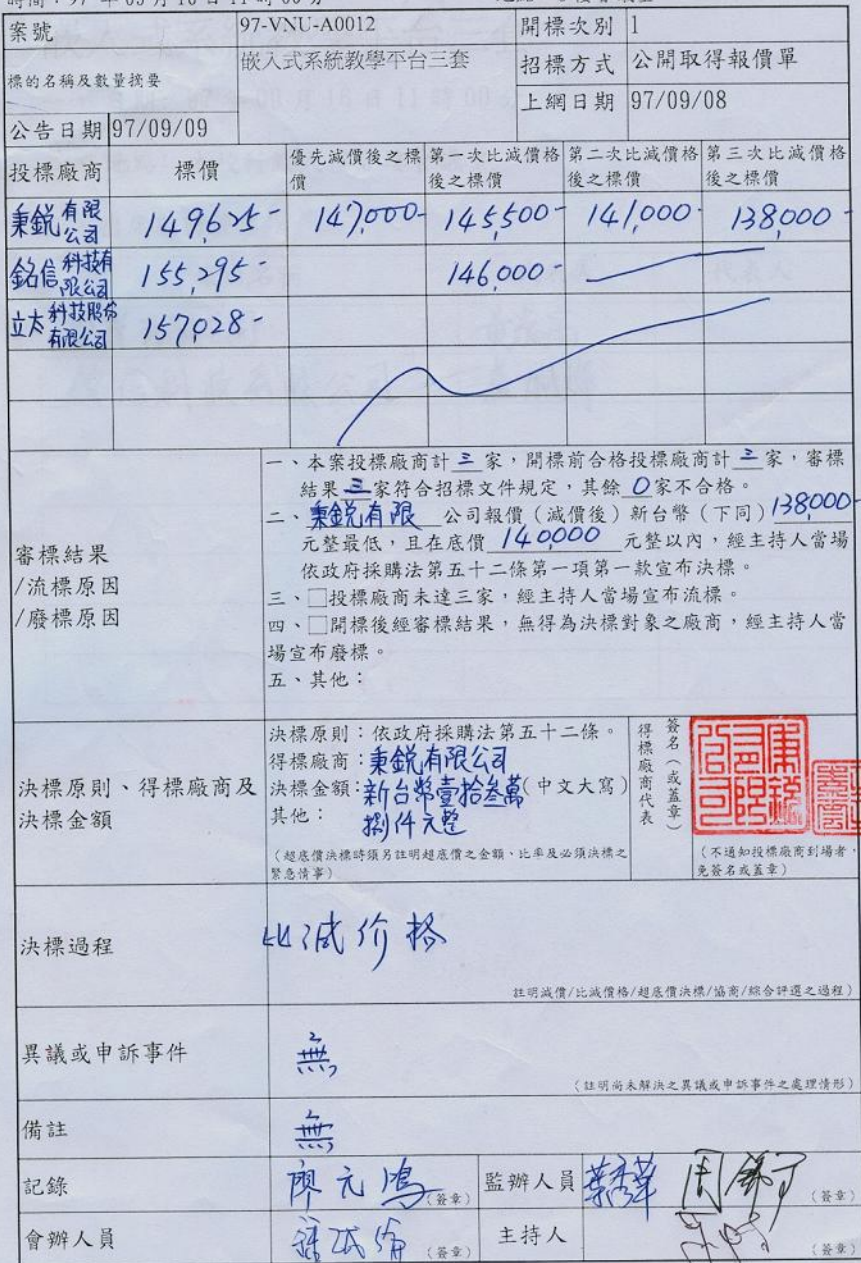 時間：97 年 09 月 18 日 11 時 00 分
案號 97-VNU-A0012 開標次別 1
標的名稱及數量摘要 嵌入式系統教學平台三套 招標方式 公開取得報價單
公告日期 97/09/09 上網日期 97/09/08
投標廠商 標價 優先減價後之標價 第一次比減價格後之標價 第二次比減價格後之標價 第三次比減價格後之標價
秉銳有限公司 149,625- 147,000- 145,500- 141,000- 138,000-
銘信科技有限公司 155,295- 146,000-
立太科技股份有限公司 157,028-
審標結果
/流標原因
/廢標原因
一、本案投標廠商計 三 家，開標前合格投標廠商計 三 家，審標
結果 三 家符合招標文件規定，其餘 0 家不合格。
二、秉銳有限 公司報價（減價後）新台幣（下同）138,000-
元整最低，且在底價 140,000 元整以內，經主持人當場
依政府採購法第五十二條第一項第一款宣布決標。
三、□投標廠商未達三家，經主持人當場宣布流標。
四、□開標後經審標結果，無得為決標對象之廠商，經主持人當
場宣布廢標。
五、其他：
決標原則、得標廠商及
決標金額
決標原則：依政府採購法第五十二條。
得標廠商：秉銳有限公司
決標金額：新台幣壹拾叁萬（中文大寫）
其他： 捌仟元整
（超底價決標時須另註明超底價之金額、比率及必須決標之
緊急情事）
得標廠商代表
簽名（或蓋章）
秉銳有限公司
（不通知投標廠商到場者，
免簽名或蓋章）
決標過程 比減价格
註明減價/比減價格/超底價決標/協商/綜合評選之過程）
異議或申訴事件 無
（註明尚未解決之異議或申訴事件之處理情形）
備註 無
記錄 廖元鴻（簽章） 監辦人員 （簽章）
會辦人員 （簽章） 主持人 （簽章）